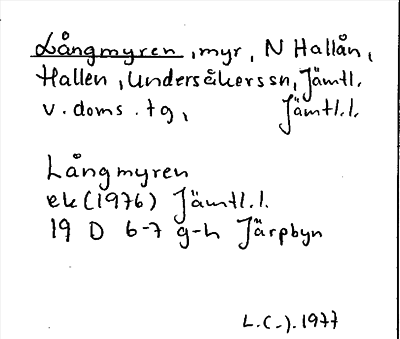 Långmyren, myr, N Hallån,
Hallen, Undersåkers sn, Jämtl.
v. doms. tg, Jämtl.l.
Långmyren
ek (1976) Jämtl.l.
19 D 6-7 g-h Järpbyn
L.(-).1977